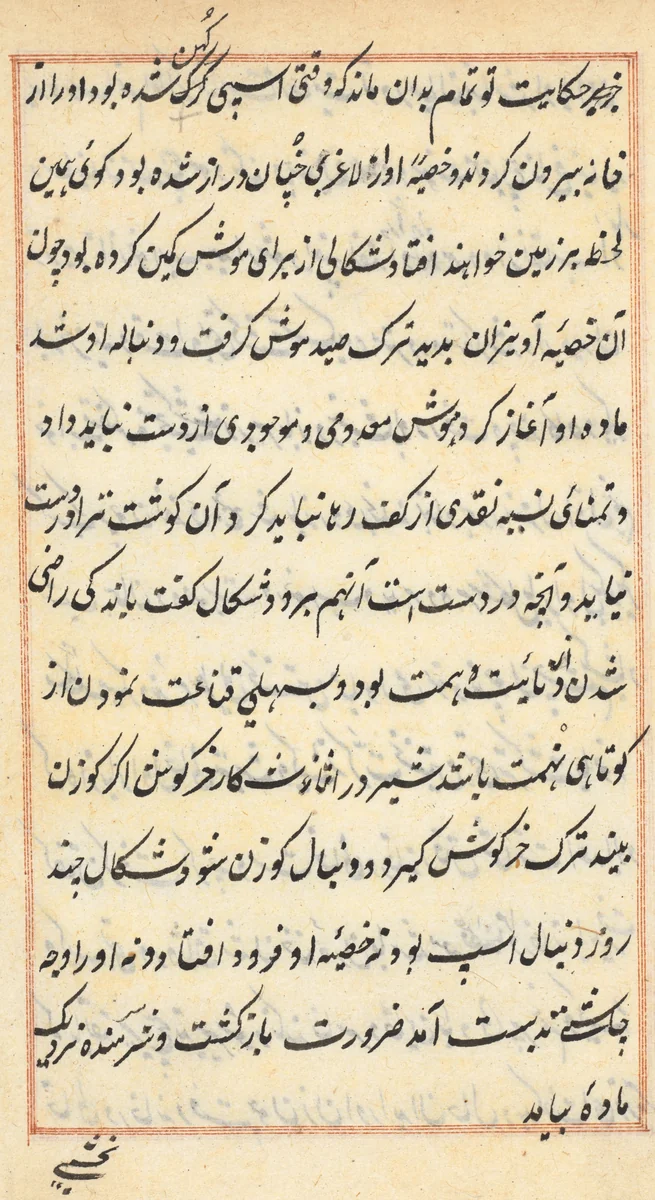 کهن
حکایت تو تمام بدان ماند که وقتی اسپی کرک شده بود او را از
خانه بیرون کردند و خصیهٔ او از لاغری چنان دراز شده بود کوئی همین
لحظه بر زمین خواهند افتاد شکالی از برای موش کمین کرده بود چون
آن خصیهٔ آویزان بدید ترک صید موش کرفت و دنباله او شد
ماده او آغاز کرد موش معدومی و موجودی از دست نباید داد
و تمنائی نسیه نقدی از کف رها نباید کرد آن کوشت ترا در دست
نیاید و آنچه در دست است آنهم برود شکال کفت باندکی راضی
شدن از دنائیت همت بود و بسهلی قناعت نمودن از
کوتاهی نهمت باشد شیر در اثناء شکار خرکوش اکر کوزن
بیند ترک خرکوش کیرد و دنبال کوزن شود شکال چند
روز دنبال اسپ بود نه خصیهٔ او فرود افتاد و نه او را وجه
چاشتی بدست آمد ضرورت بازکشت و شرمنده نزدیک
مادهٔ بیاید
نخشبی